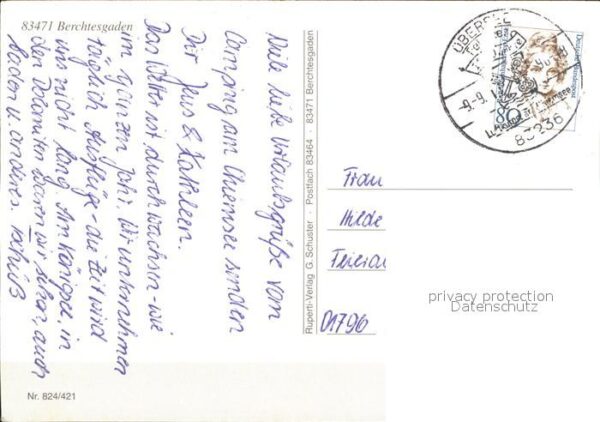 83471 Berchtesgaden
Viele liebe Urlaubsgrüße vom
Camping am Chiemsee senden
Dir Jens & Kathleen.
Das Wetter ist durchwachsen - wie
im ganzen Jahr. Wir unternehmen
täglich Ausflüge - die Zeit wird
uns nicht lang. Am Königsee, in
den Dolomiten waren wir schon, auch
baden u. anderes. Tschüß
Nr. 824/421
Ruperti-Verlag G. Schuster · Postfach 83464 · 83471 Berchtesgaden
ÜBERSEE
-9.-9.
83236
80
Deutsche Bundespost
Frau
Hilde
01796
privacy protection
Datenschutz